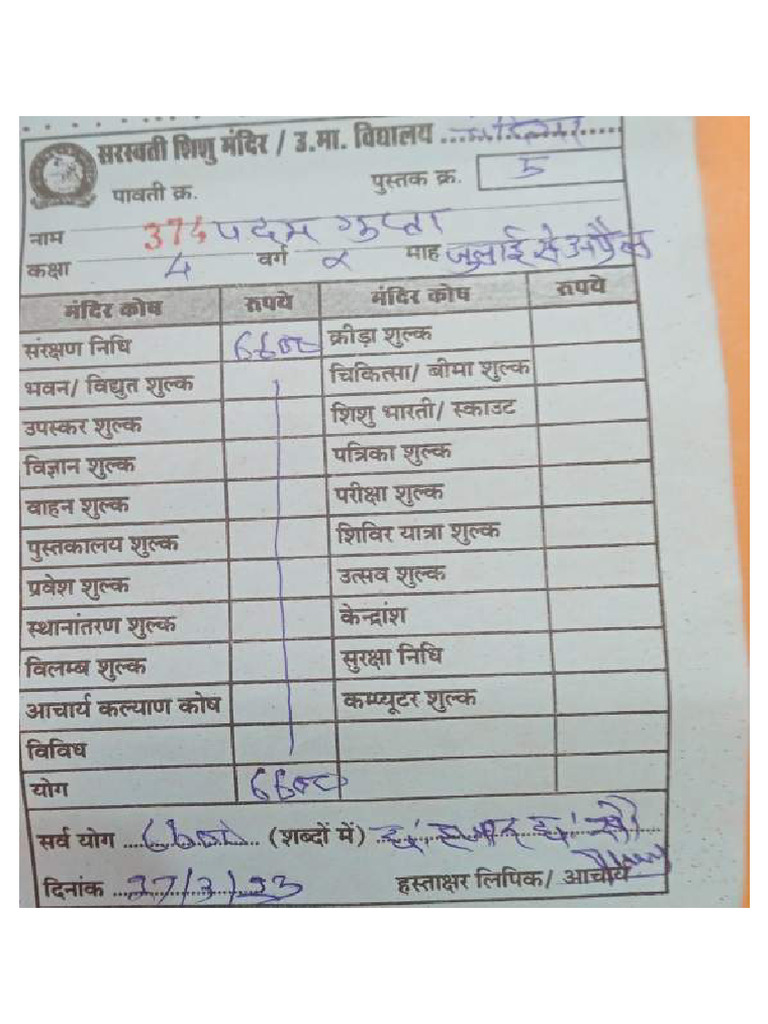 सरस्वती शिशु मंदिर / उ.मा. विद्यालय
पावती क्र. पुस्तक क्र. 5
374
नाम पदम गुप्ता
कक्षा 4 वर्ग माह जुलाई से अप्रैल
मंदिर कोष रुपये मंदिर कोष रुपये
संरक्षण निधि 6600 क्रीड़ा शुल्क
भवन/ विद्युत शुल्क चिकित्सा/ बीमा शुल्क
उपस्कर शुल्क शिशु भारती/ स्काउट
विज्ञान शुल्क पत्रिका शुल्क
वाहन शुल्क परीक्षा शुल्क
पुस्तकालय शुल्क शिविर यात्रा शुल्क
प्रवेश शुल्क उत्सव शुल्क
स्थानांतरण शुल्क केन्द्रांश
विलम्ब शुल्क सुरक्षा निधि
आचार्य कल्याण कोष कम्प्यूटर शुल्क
विविध
योग 6600
सर्व योग 6600 (शब्दों में) छः हजार छः सौ
दिनांक /3/23 हस्ताक्षर लिपिक/ आचार्य